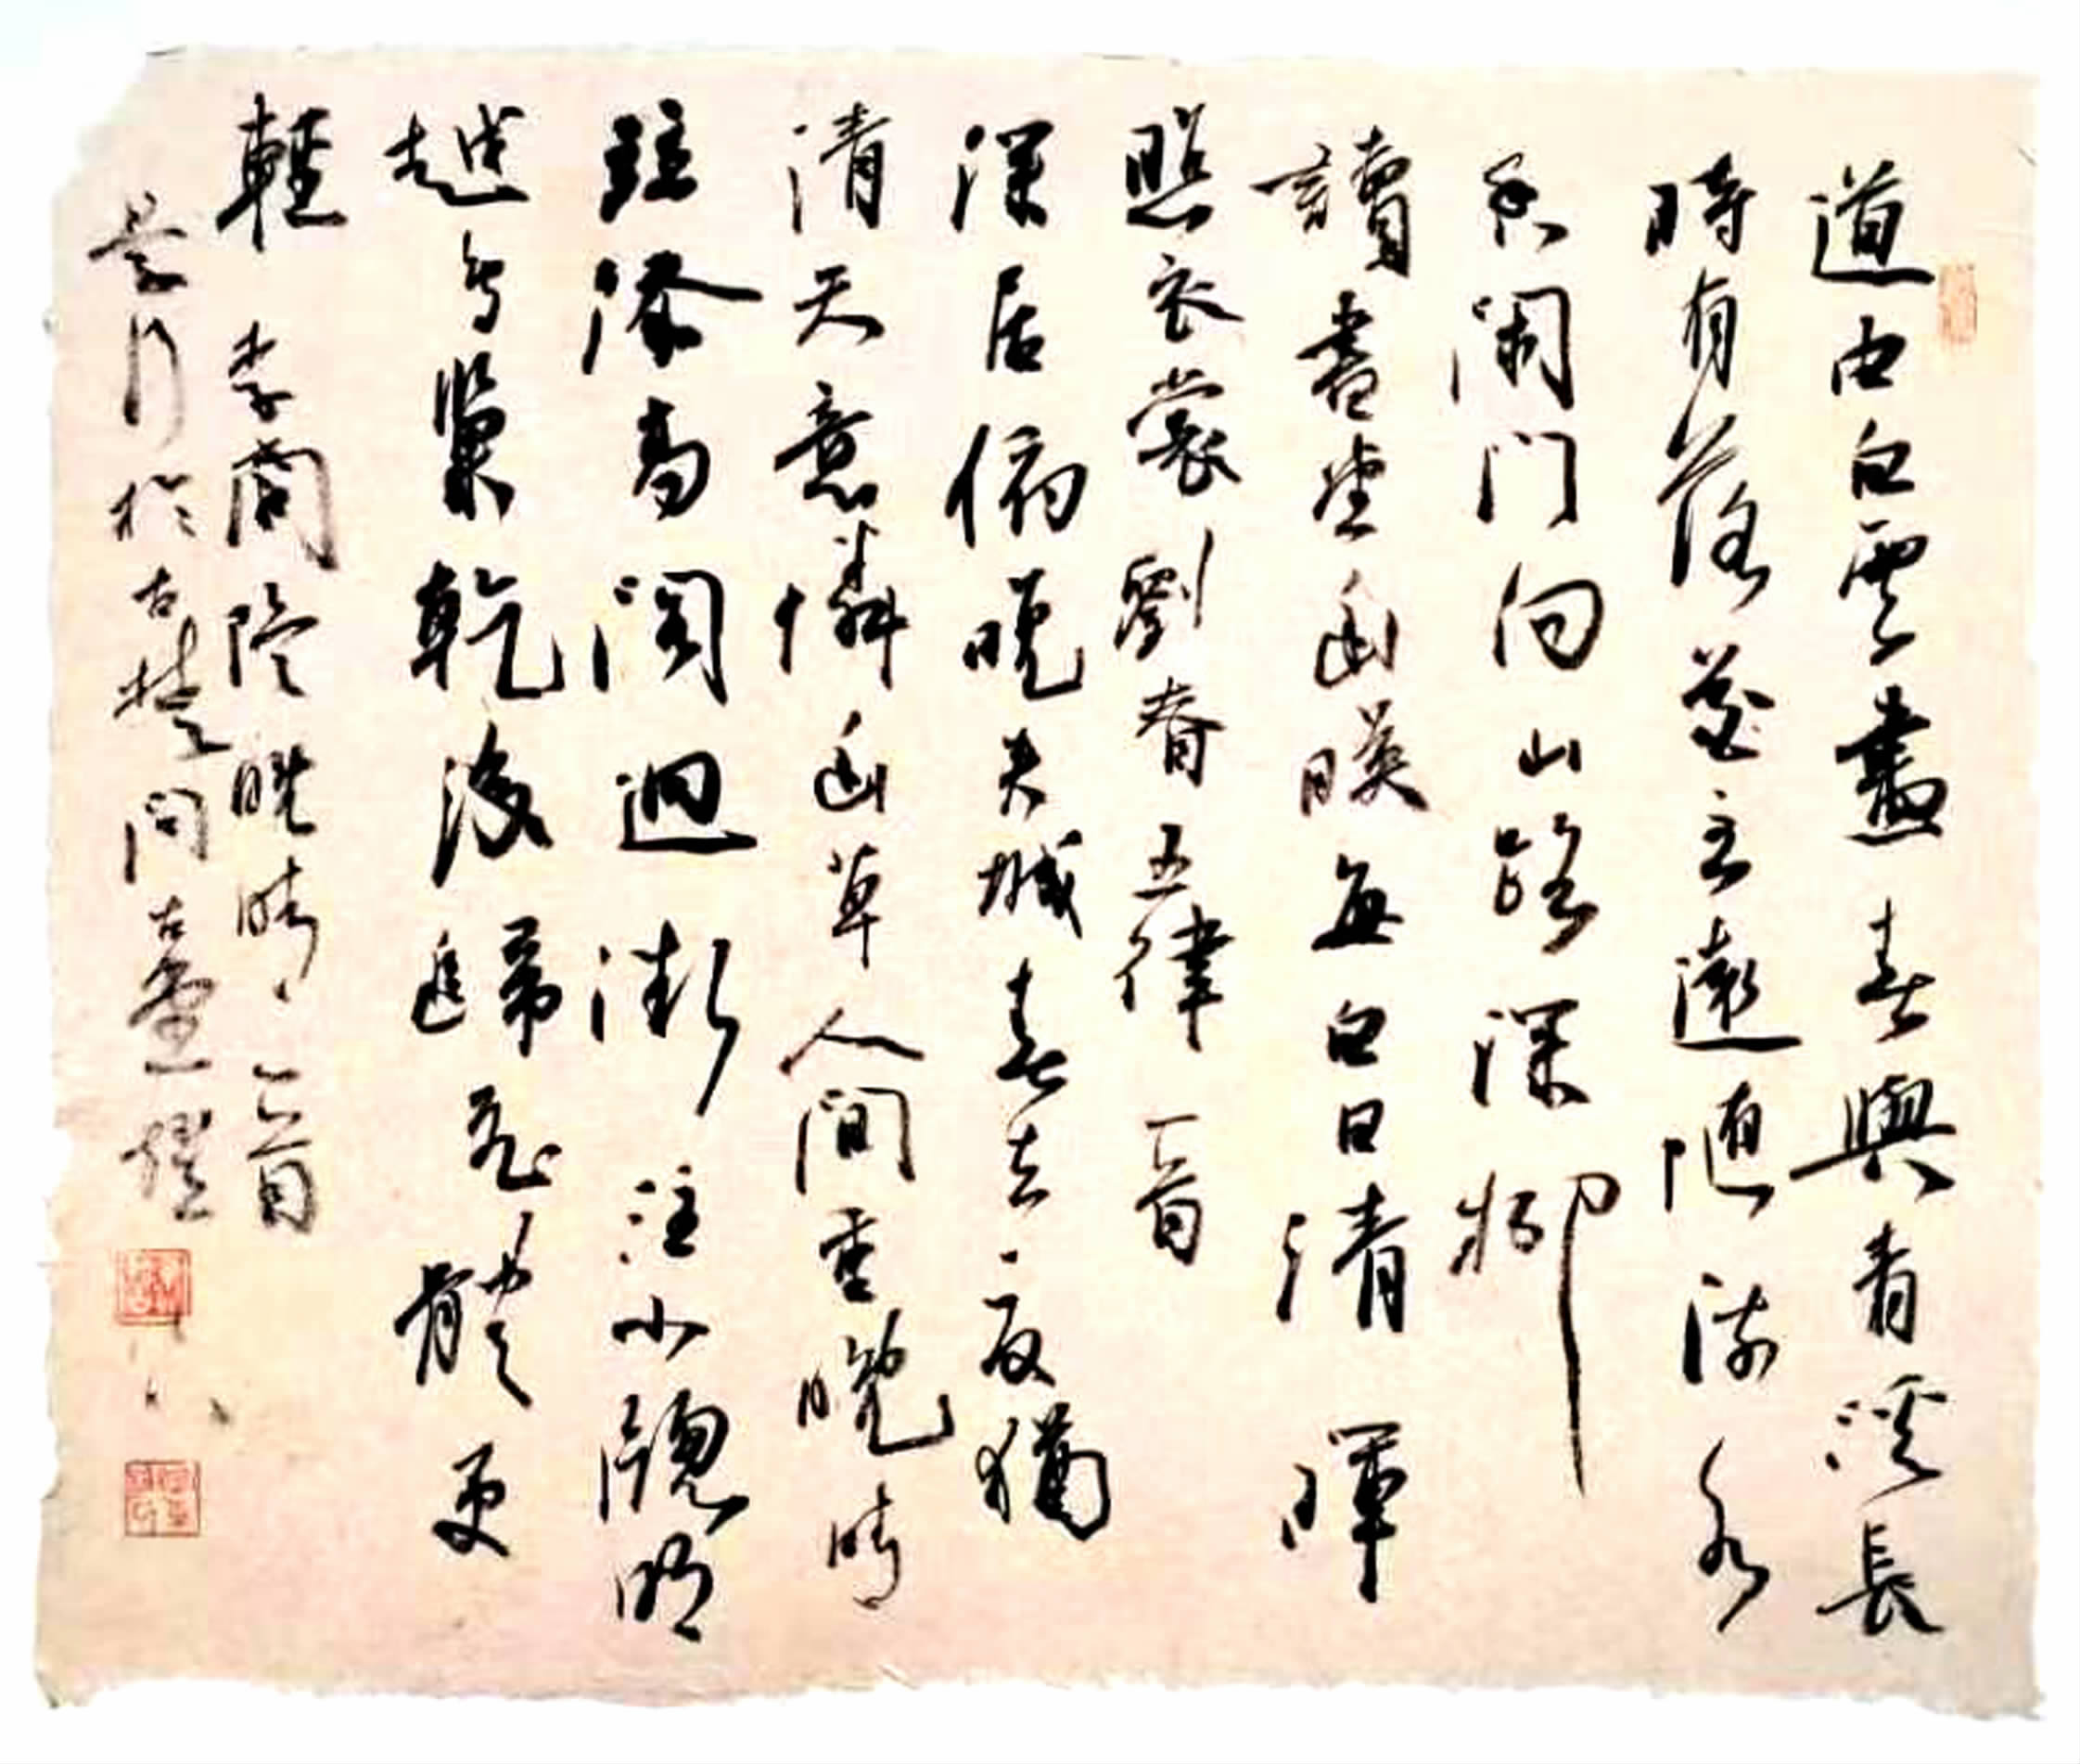 道由白雲盡春與青溪長
時有落花至遠隨流水
香閑門向山路深柳
讀書堂幽映每白日清暉
照衣裳劉眘五律一首
深居俯晚夾城春去夏猶
清天意憐幽草人間重晚晴
並添高閣迥漸注小牕明
越鳥巢乾後歸飛體更
輕 李商隱晚晴一首
景行於古楚問古